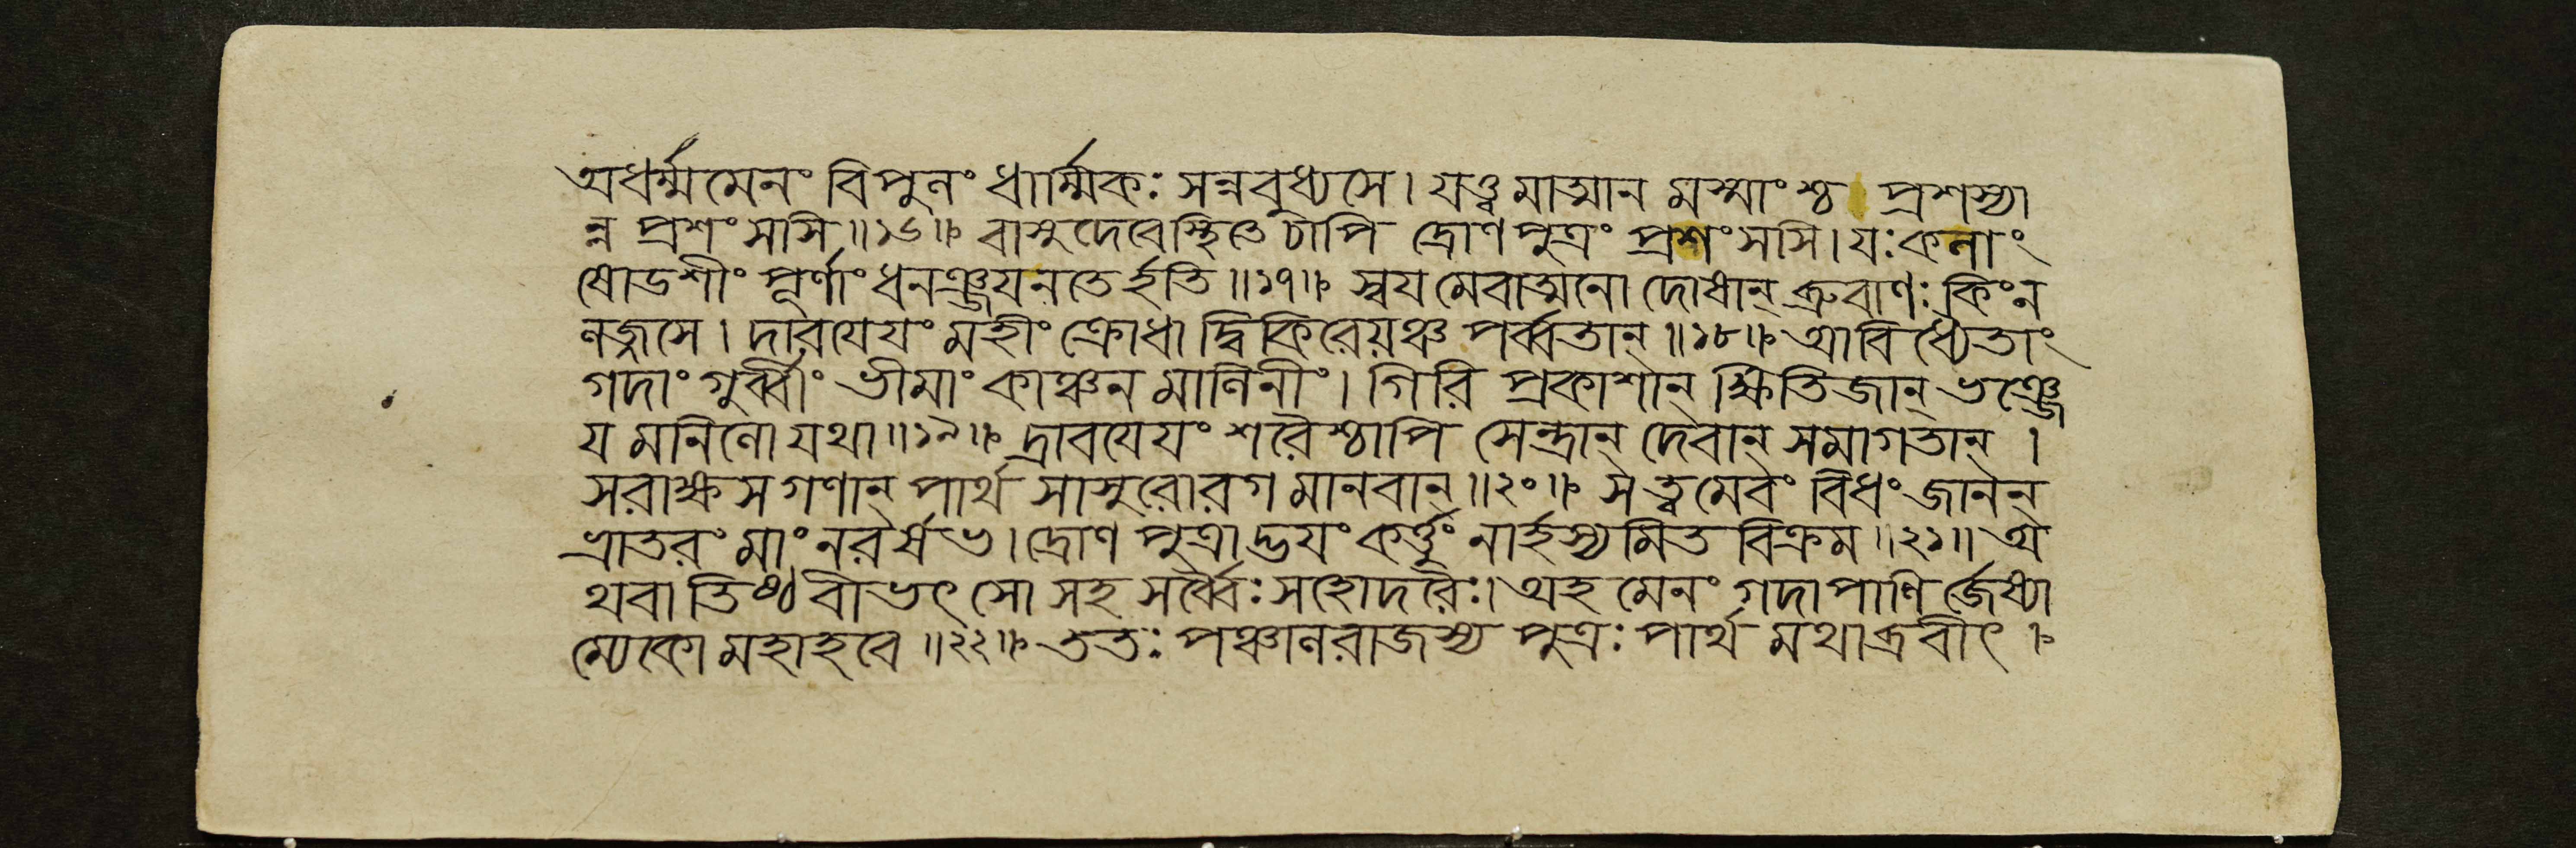 অধর্ম্মমেনং বিপুলং ধার্ম্মিকঃ সন্নবুধ্যসে। যত্ত্বমাত্মান মস্মাংশ্চ প্রশস্যা
ন্ন প্রশংসসি॥১৬॥ বাসুদেবেস্থিতে চাপি দ্রোণপুত্রং প্রশংসসি। যঃ কলাং
ষোডশীং পূর্ণাং ধনঞ্জয়নতের্হতি॥১৭॥ স্বয়মেবাত্মনো দোষান্ ব্রুবাণঃ কিংন
লজ্জসে। দারযেযং মহীং ক্রোধাদ্বিকিরেয়ঞ্চ পর্ব্বতান্॥১৮॥ আবিধ্যেতাং
গদাং গুর্ব্বীং ভীমাং কাঞ্চন মালিনীং। গিরি প্রকাশান্ ক্ষিতিজান্ ভঞ্জে
য মনিলো যথা॥১৯॥ দ্রাবযেযং শরৈশ্চাপি সেন্দ্রান্ দেবান্ সমাগতান্।
সরাক্ষস গণান্ পার্থ সাসুরোরগ মানবান্॥২০॥ স ত্বমেবং বিধং জানন্
ভ্রাতরং মাং নরর্ষভ। দ্রোণ পুত্রাদ্ভয়ং কর্ত্তুং নার্হস্যমিত বিক্রম॥২১॥ অ
থবা তিষ্ঠ বীভৎসো সহ সর্ব্বৈঃ সহোদরৈঃ। অহ মেনং গদাপাণি র্জেষ্যা
ম্যেকো মহাহবে॥২২॥ ততঃ পঞ্চালরাজস্য পুত্রঃ পার্থ মথাব্রবীৎ।